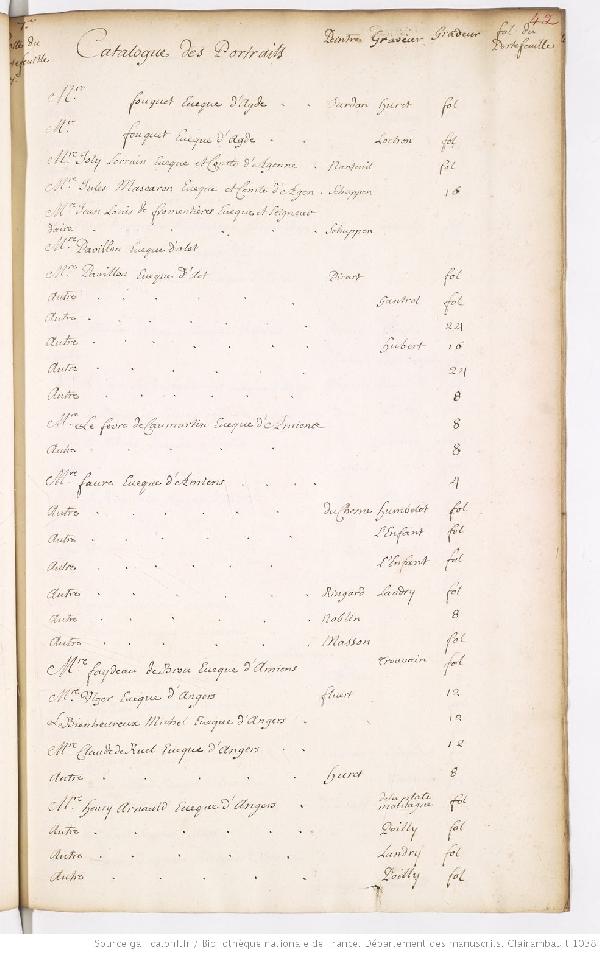 42
Catalogue des Portraits Peintre Graveur Gradeur fol du Portefeuille
Mre fouquet Eueque d'Agde . . Huret fol
Mre fouquet Eueque d'Agde . Lochon fol
Mre Joly Lorrain Eueque et Comte d'Agenne . Nanteuil fol
Mre Jules Mascaron Eueque et Comte d'Agen . Schuppen 16
Mre Jean Louis de fromentieres Eueque et Seigneur
d'aire . . . . . Schuppen
Mre Pavillon Eueque d'alet
Mre Pavillon Eueque d'alet Picart fol
Autre . . . . . Gantrel fol
Autre . . . . . 24
Autre . . . . . Hubert 16
Autre . . . . . 24
Autre . . . . . 8
Mre Le fevre de Caumartin Eueque d'Amiens 8
Autre . . . . . 8
Mre faure Eueque d'Amiens . . . . 4
Autre . . . . . du Chesne Humbelot fol
Autre . . . . . L'Enfant fol
Autre . . . . . L'Enfant fol
Autre . . . . . Ringard Landry fol
Autre . . . . . Noblin 8
Autre . . . . . Masson fol
Mre faydeau de Brou Eueque d'Amiens Trouvain fol
Mre Viger Eueque d'Angers . 12
Le Bienheureux Michel Eueque d'Angers . 12
Mre Claude de Ruel Eueque d'Angers . . 12
Autre . . . . . Huret 8
Mre Henry Arnauld Eueque d'Angers . . fol
Autre . . . . . Poilly fol
Autre . . . . . Landry fol
Autre . . . . . Poilly fol
Source gallica.bnf.fr / Bibliothèque nationale de France. Département des manuscrits. Clairambault 1038